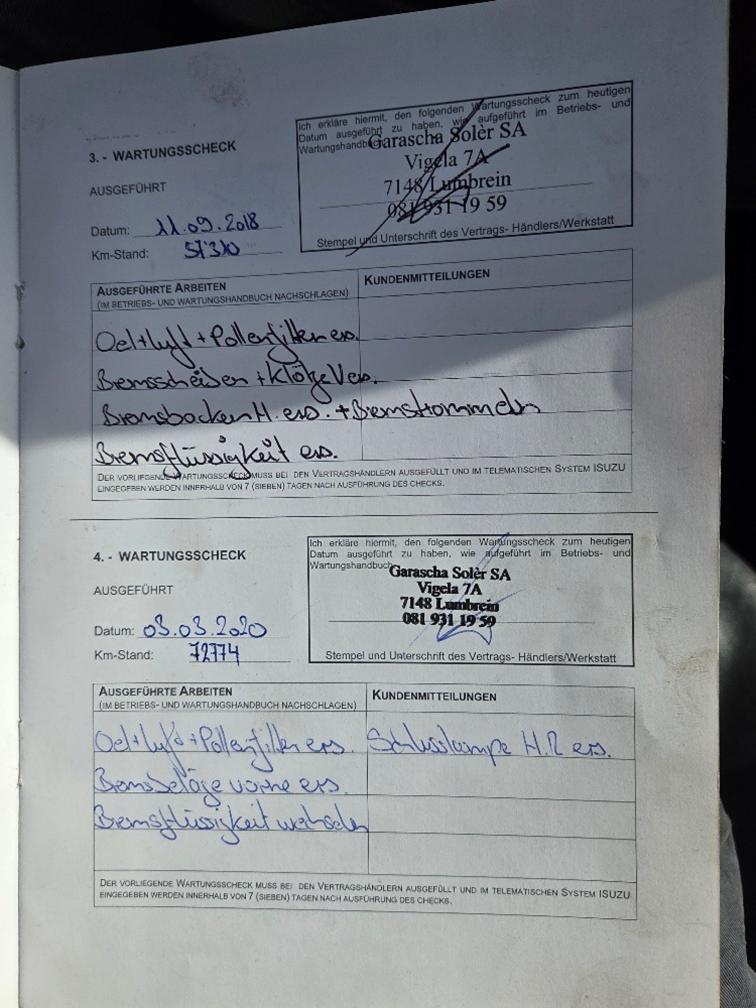 3. - WARTUNGSSCHECK
AUSGEFÜHRT
Datum: 11.09.2018
Km-Stand: 57310
Ich erkläre hiermit, den folgenden Wartungsscheck zum heutigen
Datum ausgeführt zu haben, wie aufgeführt im Betriebs- und
Wartungshandb
Garascha Solèr SA
Vigela 7A
7148 Lumbrein
081 931 19 59
Stempel und Unterschrift des Vertrags- Händlers/Werkstatt
AUSGEFÜHRTE ARBEITEN
(IM BETRIEBS- UND WARTUNGSHANDBUCH NACHSCHLAGEN)
KUNDENMITTEILUNGEN
Oel+Luft+Pollenfilter ers.
Bremsscheiben + Klötze V ers.
Bremsbacken H. ers. + Bremstrommeln
Bremsflüssigkeit ers.
DER VORLIEGENDE WARTUNGSSCHECK MUSS BEI DEN VERTRAGSHÄNDLERN AUSGEFÜLLT UND IM TELEMATISCHEN SYSTEM ISUZU
EINGEGEBEN WERDEN INNERHALB VON 7 (SIEBEN) TAGEN NACH AUSFÜHRUNG DES CHECKS.
4. - WARTUNGSSCHECK
AUSGEFÜHRT
Datum: 03.03.2020
Km-Stand: 72774
Ich erkläre hiermit, den folgenden Wartungsscheck zum heutigen
Datum ausgeführt zu haben, wie aufgeführt im Betriebs- und
Wartungshandbuch
Garascha Solèr SA
Vigela 7A
7148 Lumbrein
081 931 19 59
Stempel und Unterschrift des Vertrags- Händlers/Werkstatt
AUSGEFÜHRTE ARBEITEN
(IM BETRIEBS- UND WARTUNGSHANDBUCH NACHSCHLAGEN)
KUNDENMITTEILUNGEN
Oel+Luft+Pollenfilter ers. Schlusslampe H.R ers.
Bremsbeläge vorne ers.
Bremsflüssigkeit wechseln
DER VORLIEGENDE WARTUNGSSCHECK MUSS BEI DEN VERTRAGSHÄNDLERN AUSGEFÜLLT UND IM TELEMATISCHEN SYSTEM ISUZU
EINGEGEBEN WERDEN INNERHALB VON 7 (SIEBEN) TAGEN NACH AUSFÜHRUNG DES CHECKS.